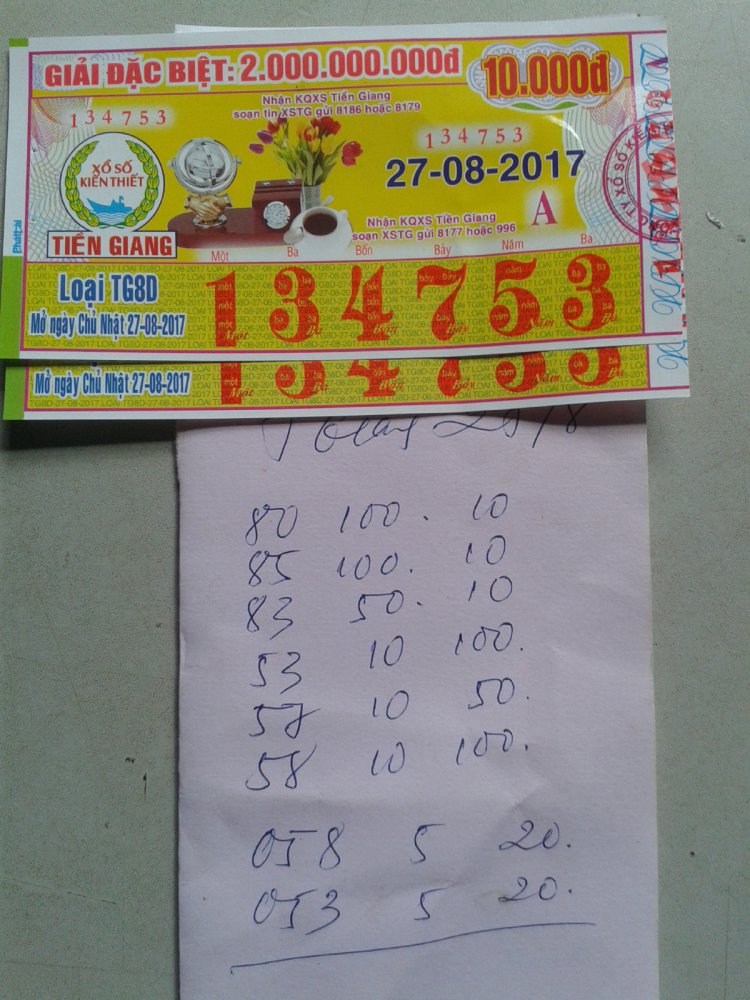 GIẢI ĐẶC BIỆT: 2.000.000.000đ
10.000đ
Nhận KQXS Tiền Giang
soạn tin XSTG gửi 8186 hoặc 8179
134753
134753
XỔ SỐ
KIẾN THIẾT
27-08-2017
A
Nhận KQXS Tiền Giang
soạn XSTG gửi 8177 hoặc 996
TIỀN GIANG
Một Ba Bốn Bảy Năm Ba
Loại TG8D
Mở ngày Chủ Nhật 27-08-2017
134753
Mở ngày Chủ Nhật 27-08-2017
134753
80 100. 10
85 100. 10
83 50. 10
53 10 100.
57 10 50.
58 10 100.
058 5 20.
053 5 20.